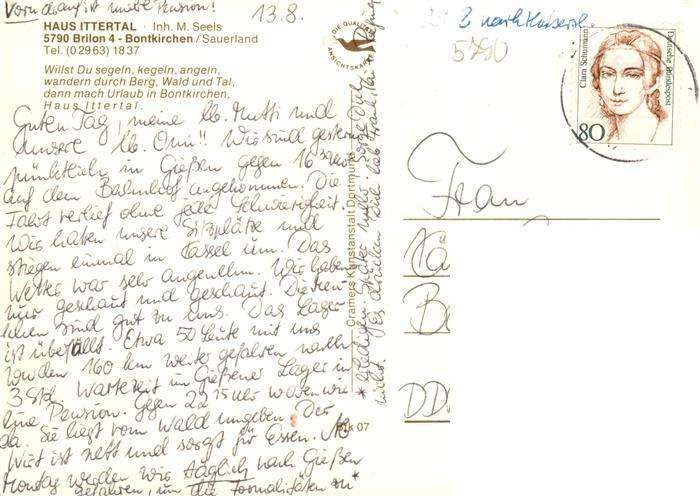 Vorn drauf ist unsere Pension!
13.8.
HAUS ITTERTAL · Inh. M. Seels
5790 Brilon 4 - Bontkirchen / Sauerland
Tel. (0 29 63) 18 37
Willst Du segeln, kegeln, angeln,
wandern durch Berg, Wald und Tal,
dann mach Urlaub in Bontkirchen,
Haus Ittertal.
Guten Tag, meine lb. Mutti und
unsere lb. Omi!! Wir sind gestern
pünktlich in Gießen gegen 16³⁰ Uhr
auf dem Bahnhof angekommen. Die
Fahrt verlief ohne jede Schwierigkeit.
Wir hatten unsere Sitzplätze und
stiegen einmal in Kassel um. Das
Wetter war sehr angenehm. Wir haben
nur geschaut und geschaut. Die Men-
schen sind gut zu uns. Das Lager
ist überfüllt. Etwa 50 Leute mit uns
wurden 160 km weiter gefahren nach
3 Std. Wartezeit im Gießener Lager in
eine Pension. Gegen 22¹⁵ Uhr waren wir
da. Sie liegt vom Wald umgeben. Der
Wirt ist nett und sorgt für Essen. Ab
Montag werden wir täglich nach Gießen
gefahren, um die Formalitäten zu *
* erledigen.
Es drücken Dich lieb
nichts.
DIE QUALITÄTS
ANSICHTSKARTE
Cramers Kunstanstalt Dortmund
Btk 07
5790
Clara Schumann
Deutsche Bundespost
80
Frau
DD